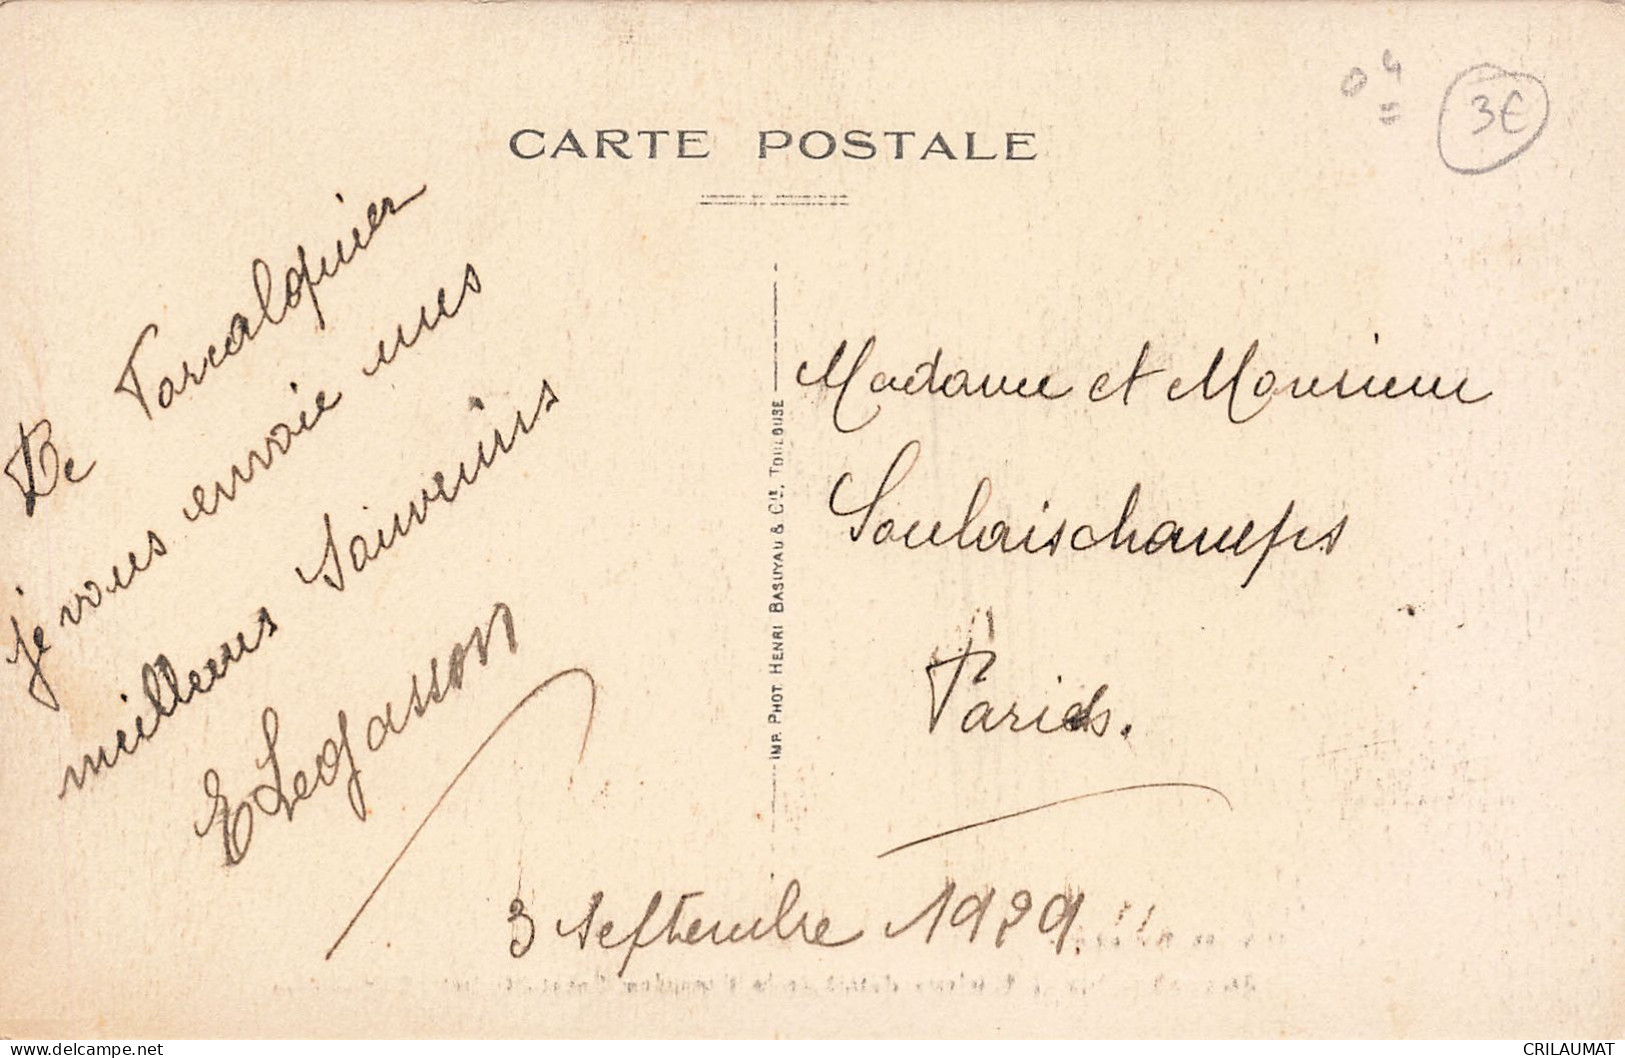 CARTE POSTALE
04
=
3€
De Forcalquier
je vous envoie mes
meilleurs Souvenirs
E Legasson
IMP. PHOT. HENRI BASUYAU & CIE. TOULOUSE
Madame et Monsieur
Soulaischamps
Paris.
3 Septembre 1929
delcampe.net
CRILAUMAT